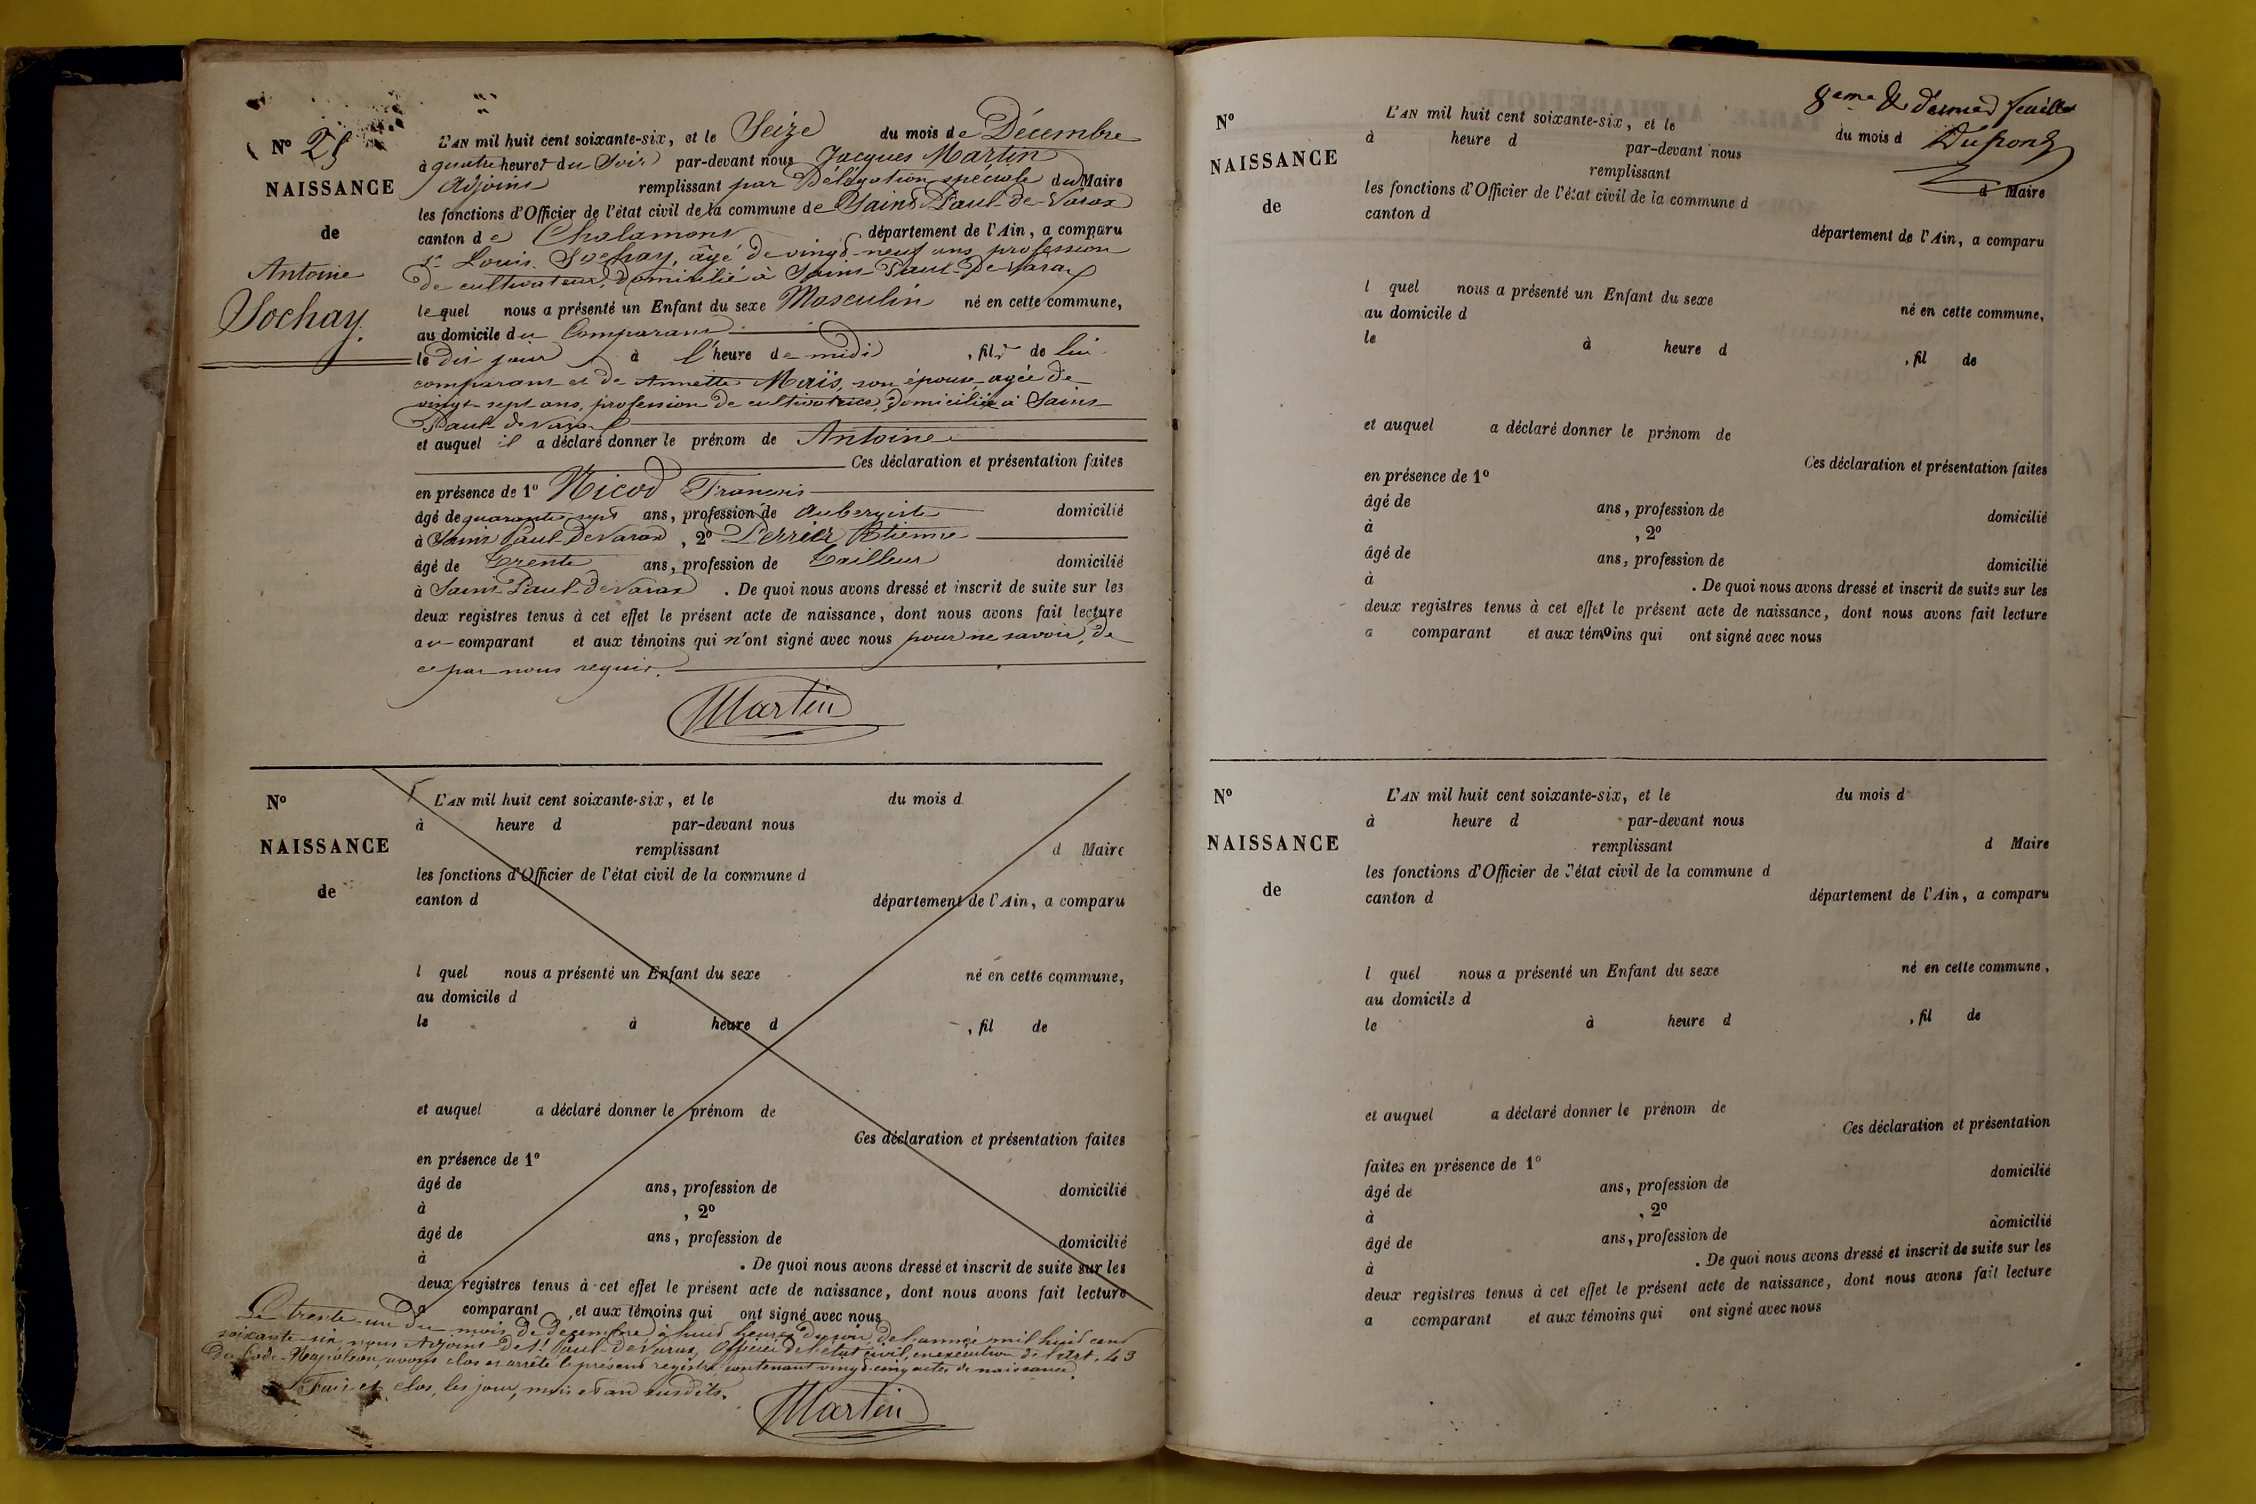 Nº 25
NAISSANCE
de
Antoine
Sochay.
L'AN mil huit cent soixante-six, et le Seize du mois de Décembre
à quatre heures du Soir par-devant nous Jacques Martin
Adjoint remplissant par Délégation spéciale du Maire
les fonctions d'Officier de l'état civil de la commune de Saint Paul-de-Varax
canton de Chalamont département de l'Ain, a comparu
Sr Louis Sochay, âgé de vingt-neuf ans, profession
de cultivateur, domicilié à Saint Paul-de-Varax
lequel nous a présenté un Enfant du sexe Masculin né en cette commune,
au domicile du Comparant
le dit jour à l'heure de midi, fils de lui
comparant et de Annette Maïs, son épouse agée de
vingt-sept ans, profession de cultivatrice, domiciliée à Saint
Paul-de-Varax
et auquel il a déclaré donner le prénom de Antoine
Ces déclaration et présentation faites
en présence de 1º Nicod François
âgé de quarante-sept ans, profession de aubergiste domicilié
à Saint Paul-de-Varax, 2º Perrier Etienne
âgé de trente ans, profession de tailleur domicilié
à Saint Paul-de-Varax. De quoi nous avons dressé et inscrit de suite sur les
deux registres tenus à cet effet le présent acte de naissance, dont nous avons fait lecture
au comparant et aux témoins qui n'ont signé avec nous pour ne savoir, de
ce par nous requis.
Martin
Nº
NAISSANCE
de
L'AN mil huit cent soixante-six, et le du mois d
à heure d par-devant nous
remplissant d Maire
les fonctions d'Officier de l'état civil de la commune d
canton d département de l'Ain, a comparu
l quel nous a présenté un Enfant du sexe né en cette commune,
au domicile d
le à heure d , fil de
et auquel a déclaré donner le prénom de
Ces déclaration et présentation faites
en présence de 1º
âgé de ans, profession de domicilié
à , 2º
âgé de ans, profession de domicilié
à . De quoi nous avons dressé et inscrit de suite sur les
deux registres tenus à cet effet le présent acte de naissance, dont nous avons fait lecture
a comparant , et aux témoins qui ont signé avec nous
Le trente-un du mois de Décembre à huit heures du soir, de l'année mil huit cent
soixante-six, nous Adjoint de St Paul-de-Varax, Officier de l'état civil, en exécution de l'Art. 43
du Code Napoléon, avons clos et arrêté le présent registre, contenant vingt-cinq actes de naissance.
Fait et clos, les jour, mois et an susdits.
Martin
8eme & dernier feuillet
Dupont
Nº
NAISSANCE
de
L'AN mil huit cent soixante-six, et le du mois d
à heure d par-devant nous
remplissant d Maire
les fonctions d'Officier de l'état civil de la commune d
canton d département de l'Ain, a comparu
l quel nous a présenté un Enfant du sexe né en cette commune,
au domicile d
le à heure d , fil de
et auquel a déclaré donner le prénom de
Ces déclaration et présentation faites
en présence de 1º
âgé de ans, profession de domicilié
à , 2º
âgé de ans, profession de domicilié
à . De quoi nous avons dressé et inscrit de suite sur les
deux registres tenus à cet effet le présent acte de naissance, dont nous avons fait lecture
a comparant et aux témoins qui ont signé avec nous
Nº
NAISSANCE
de
L'AN mil huit cent soixante-six, et le du mois d
à heure d par-devant nous
remplissant d Maire
les fonctions d'Officier de l'état civil de la commune d
canton d département de l'Ain, a comparu
l quel nous a présenté un Enfant du sexe né en cette commune,
au domicile d
le à heure d , fil de
et auquel a déclaré donner le prénom de
Ces déclaration et présentation
faites en présence de 1º domicilié
âgé de ans, profession de
à , 2º domicilié
âgé de ans, profession de
à . De quoi nous avons dressé et inscrit de suite sur les
deux registres tenus à cet effet le présent acte de naissance, dont nous avons fait lecture
a comparant et aux témoins qui ont signé avec nous